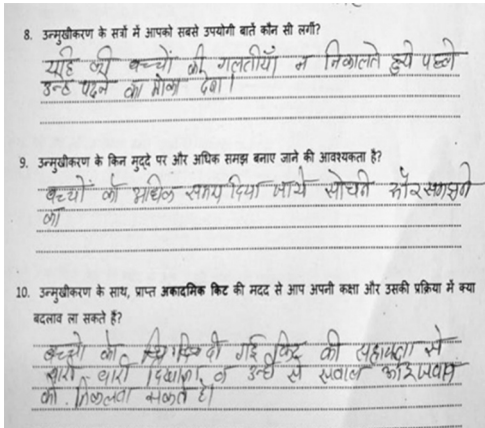 8. उन्मुखीकरण के सत्रों में आपको सबसे उपयोगी बातें कौन सी लगीं?
यहि की बच्चों की गलतीयाँ न निकालते हुये पहले
उन्हे पढने का मोका देना।
9. उन्मुखीकरण के किन मुद्दे पर और अधिक समझ बनाए जाने की आवश्यकता है?
बच्चों को अधिक समय दिया जाये सोचने और समझने
का
10. उन्मुखीकरण के साथ, प्राप्त अकादमिक किट की मदद से आप अपनी कक्षा और उसकी प्रक्रिया में क्या
बदलाव ला सकते हैं?
बच्चो को दी गई किट की सहायता से
बारी बारी दिखाना व उन्ही से सवाल और जवाब
को निकलवा सकते है।